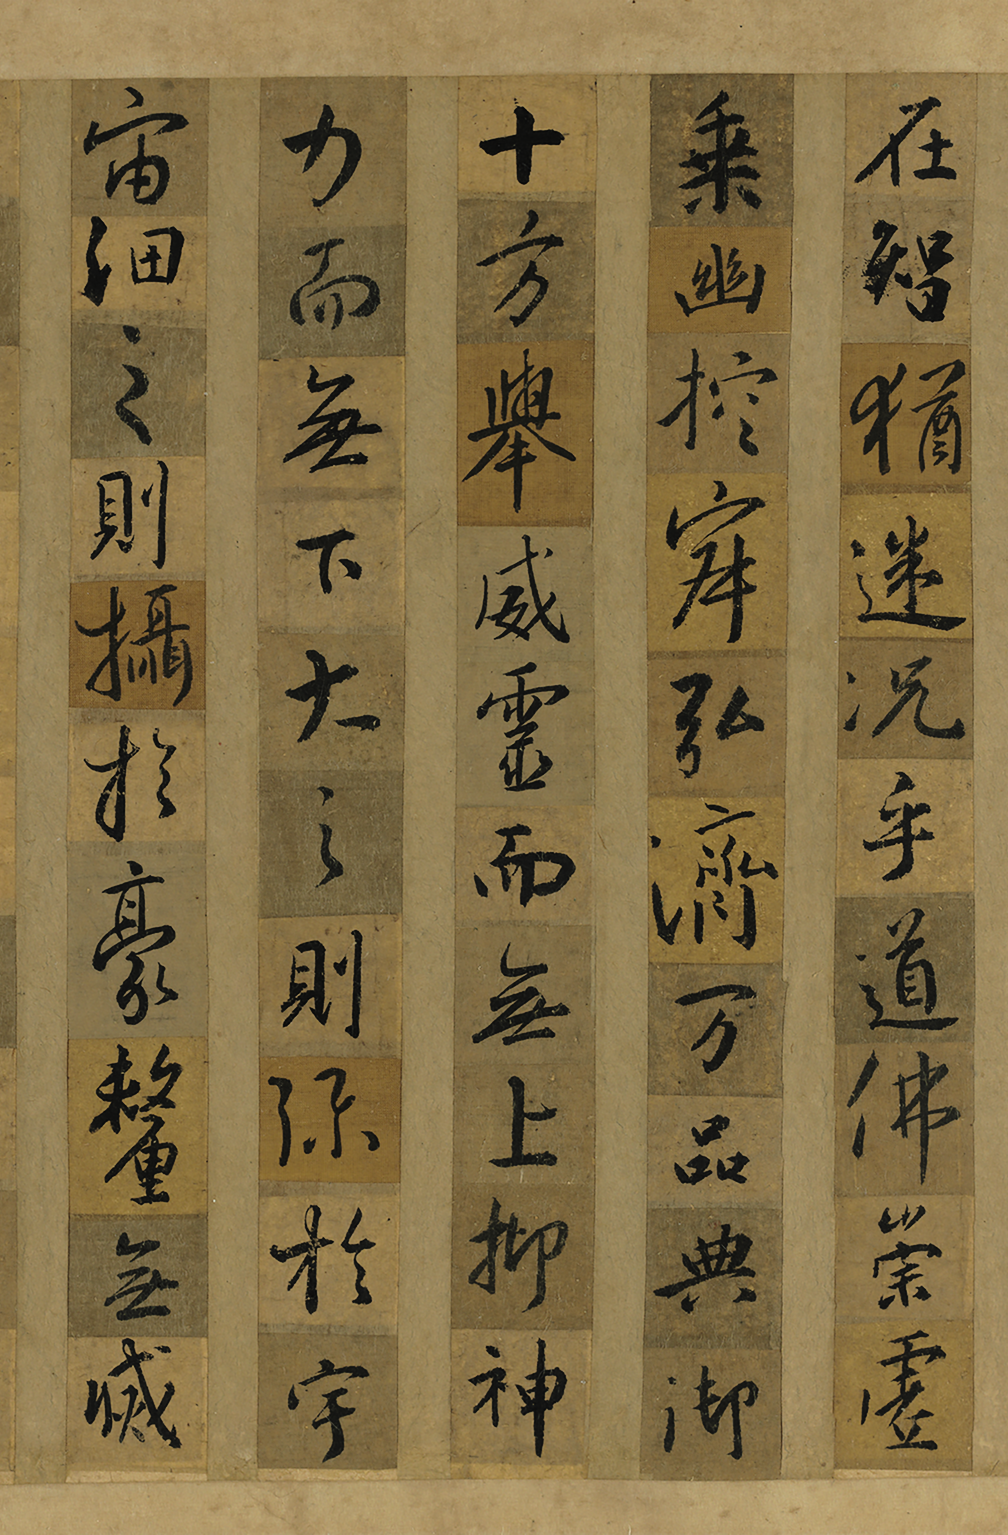 在智猶迷况乎道佛崇虛
乘幽控寂弘濟万品典御
十方舉威靈而無上抑神
力而無下大之則彌於宇
宙細之則攝於豪釐無滅